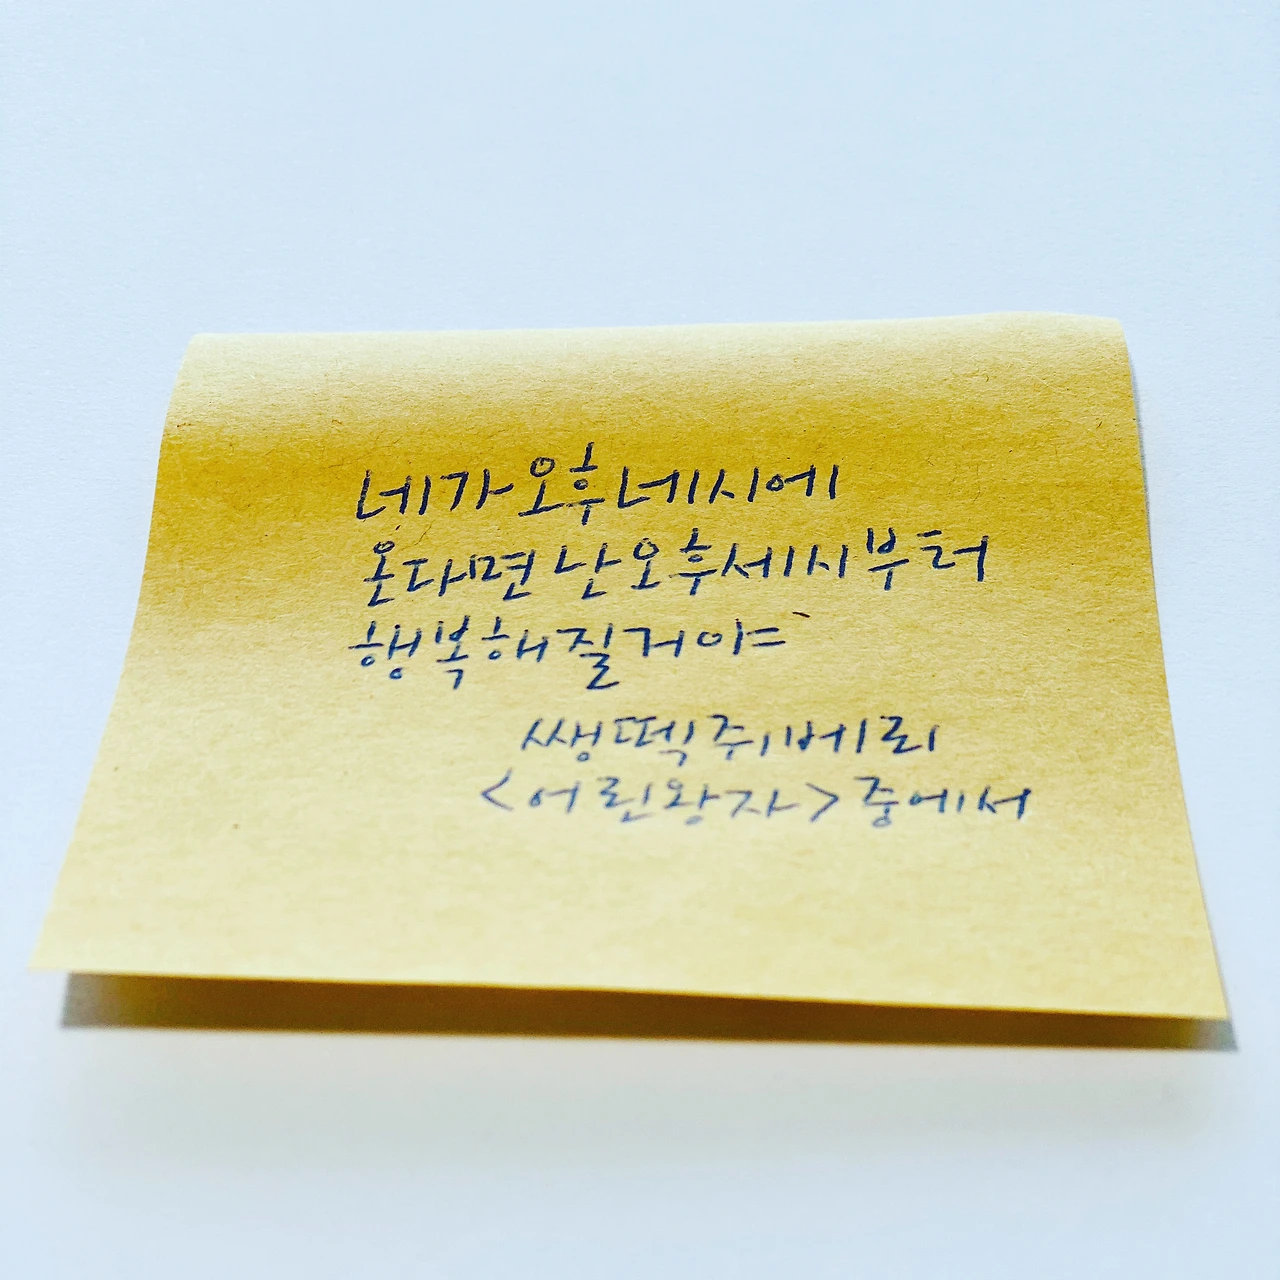 네가 오후 네시에
온다면 난 오후 세시부터
행복해질거야
쌩떽쥐베리
<어린왕자> 중에서